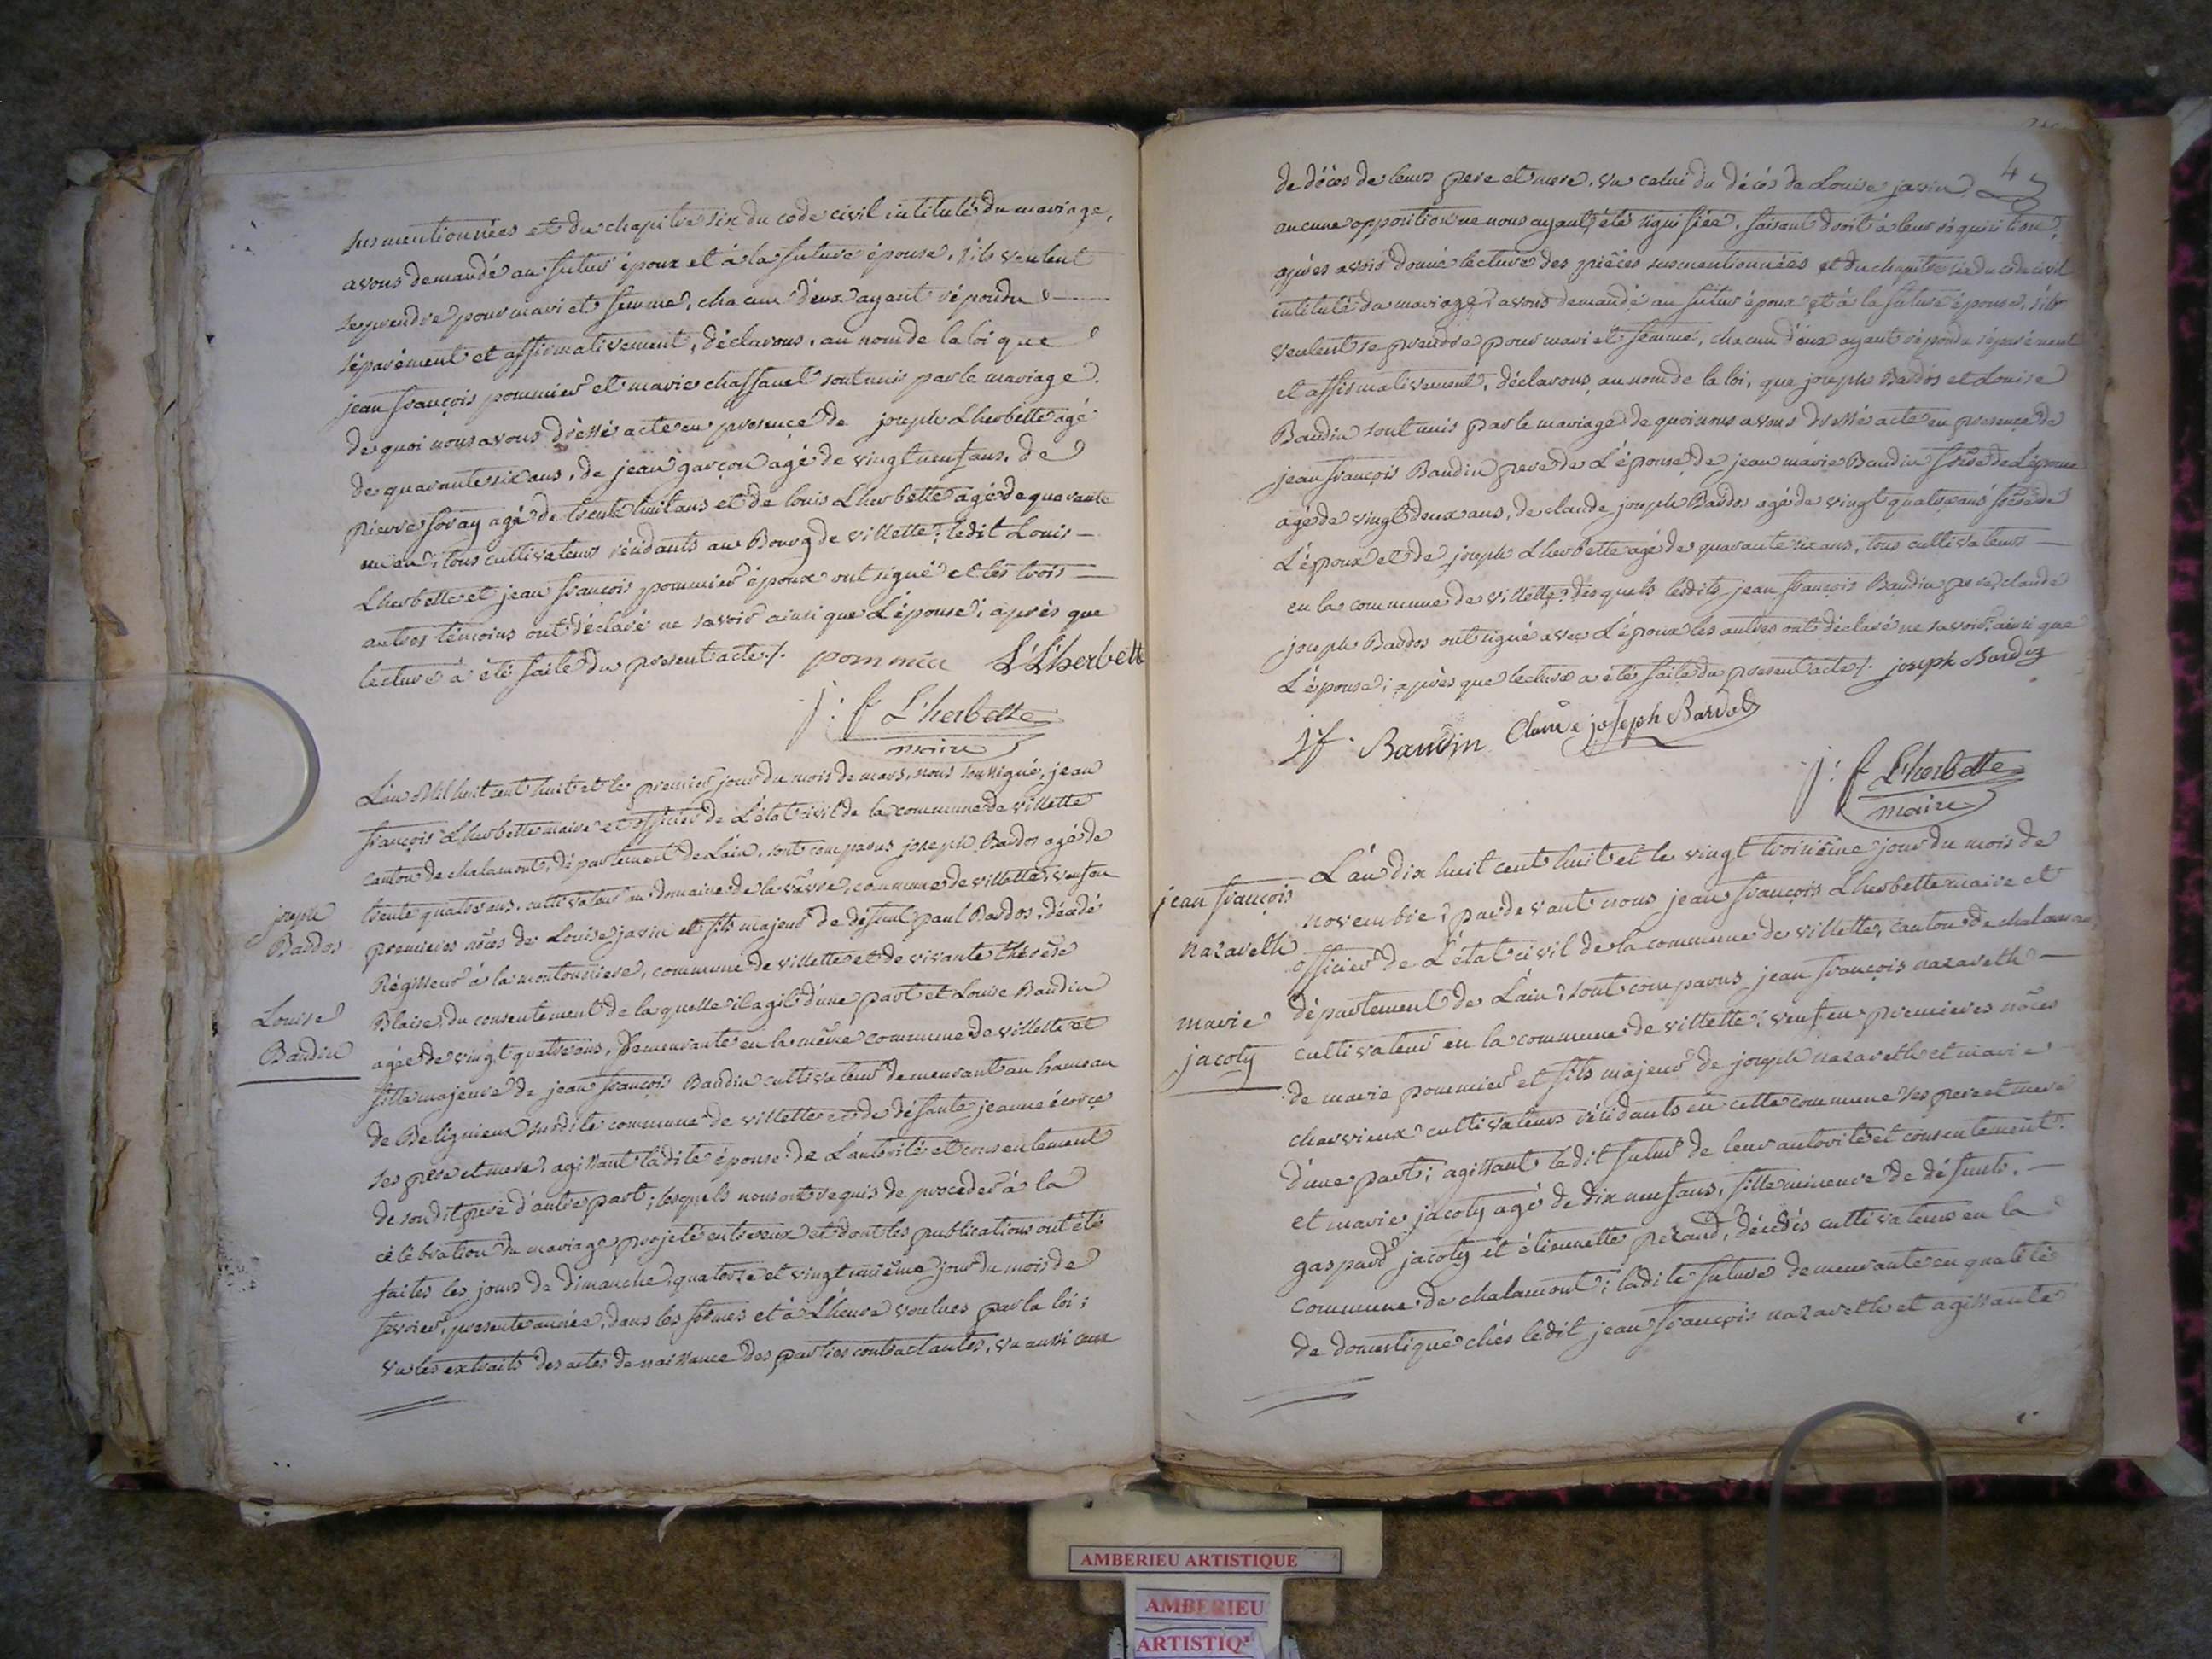 susmentionnées et du chapitre six du code civil intitulé du mariage,
avons demandé au futur époux et à la future épouse, s'ils veulent
se prendre pour mari et femme, chacun d'eux ayant répondu
séparément et affirmativement, déclarons, au nom de la loi que
jean françois pommier et marie chassanel sont unis par le mariage.
de quoi nous avons dressés acte en presence de joseph Lherbette agé
de quarante six ans, de jean garçon agé de vingt neuf ans, de
pierre foray agé de trente huit ans et de louis Lherbette agé de quarante
un an, tous cultivateurs résidants au Bourg de villette, ledit Louis
Lherbette et jean françois pommier époux ont signé et les trois
autres témoins ont déclaré ne savoir ainsi que L'épouse; après que
lecture à été faite du present acte ./. pommier L Lherbett
j. f Lherbette
maire
L'an Mil huit cent huit et le premier jour du mois de mars, nous soussigné, jean
françois Lherbette maire et officier de L'état civil de la commune de villette
canton de chalamont, département de L'ain, sont comparus joseph Bardos agé de
joseph
Bardos
trente quatre ans, cultivateur au domaine de la vavre, commune de villette, veuf en
premieres nôces de Louise javin et fils majeur de défunt paul Bardos, décédé
Régisseur à la montonniere, commune de villette et de vivante thérèse
Louise
Baudin
Blaise, du consentement de laquelle il agit d'une part et Louise Baudin
agée de vingt quatre ans, demeurante en la même commune de villette et
fille majeure de jean françois Baudin cultivateur demeurant au hameau
de Beligneux susdite commune de villette et de défunte jeanne écorce
ses pere et mere, agissant ladite épouse de L'autorité et consentement
de son dit pere d'autre part; lesquels nous ont requis de proceder à la
célébration du mariage projeté entr'eux et dont les publications ont étés
faites les jours de dimanche, quatorze et vingt unième jour du mois de
fevrier, presente année, dans les formes et à L'heure voulues par la loi;
vu les extraits des actes de naissance des parties contractantes, vu aussi ceux
4
de décès de leurs pere et mere, vu celui du décès de Louise javin,
aucune opposition ne nous ayant été signifiée, faisant droit à leur réquisition,
après avoir donné lecture des pièces susmentionnées et du chapitre six du code civil
intitulé du mariage, avons demandé au futur époux et à la future épouse, s'ils
veulent se prendre pour mari et femme, chacun d'eux ayant répondu séparément
et affirmativement, déclarons au nom de la loi, que joseph Bardos et Louise
Baudin sont unis par le mariage de quoi nous avons dressés acte en presence de
jean françois Baudin pere de L'épouse de jean marie Baudin frère de L'épouse
agé de vingt deux ans, de claude joseph Bardos agé de vingt quatre ans frère de
L'époux et de joseph Lherbette agé de quarante six ans, tous cultivateurs
en la commune de villette, desquels lesdits jean françois Baudin pere, claude
joseph Bardos ont signé avec L'époux les autres ont déclaré ne savoir, ainsi que
L'épouse; après que lecture a été faite du present acte ./. joseph Bardoz
jf. Baudin Claude joseph Bardos
j. f Lherbette
maire
jean françois
nazareth
marie
jacoty
L'an dix huit cent huit et le vingt troisième jour du mois de
novembre, pardevant nous jean françois Lherbette maire et
officier de L'état civil de la commune de villette, canton de chalamont,
département de L'ain, sont comparus jean françois nazareth
cultivateur en la commune de villette, veuf en premieres nôces
de marie pommier et fils majeur de joseph nazareth et marie
charvieux cultivateurs résidants en cette commune ses pere et mere
d'une part; agissant ledit futur de leur autorité et consentement.
et marie jacoty agé de dix neuf ans, fille mineure de défunts
gaspard jacoty et étiennette perand, décédés cultivateurs en la
commune de chalamont; ladite future demeurante en qualité
de domestique chés ledit jean françois nazareth et agissante
AMBERIEU ARTISTIQUE
AMBERIEU
ARTISTIQ